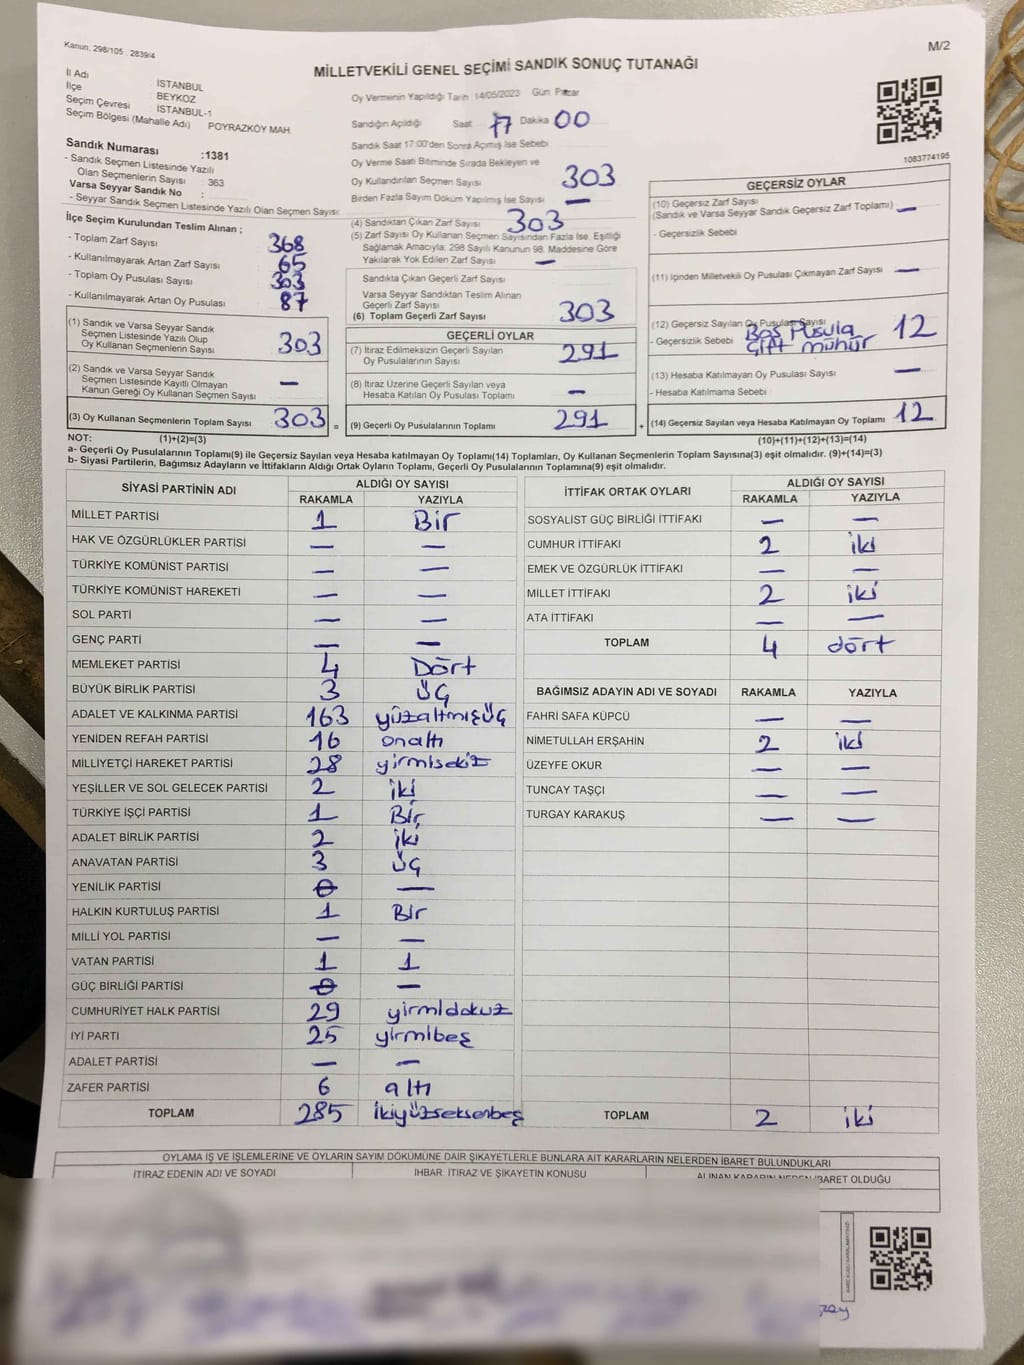 Kanun, 298/105 . 2839/4
M/2
MİLLETVEKİLİ GENEL SEÇİMİ SANDIK SONUÇ TUTANAĞI
İl Adı : İSTANBUL
İlçe : BEYKOZ
Seçim Çevresi : İSTANBUL-1
Seçim Bölgesi (Mahalle Adı) : POYRAZKÖY MAH.
Sandık Numarası :1381
- Sandık Seçmen Listesinde Yazılı
Olan Seçmenlerin Sayısı : 363
Varsa Seyyar Sandık No :
- Seyyar Sandık Seçmen Listesinde Yazılı Olan Seçmen Sayısı:
İlçe Seçim Kurulundan Teslim Alınan ;
- Toplam Zarf Sayısı : 368
- Kullanılmayarak Artan Zarf Sayısı : 65
- Toplam Oy Pusulası Sayısı : 303
- Kullanılmayarak Artan Oy Pusulası : 87
(1) Sandık ve Varsa Seyyar Sandık
Seçmen Listesinde Yazılı Olup
Oy Kullanan Seçmenlerin Sayısı 303
(2) Sandık ve Varsa Seyyar Sandık
Seçmen Listesinde Kayıtlı Olmayan
Kanun Gereği Oy Kullanan Seçmen Sayısı —
(3) Oy Kullanan Seçmenlerin Toplam Sayısı 303 =
Oy Vermenin Yapıldığı Tarih 14/05/2023 Gün Pazar
Sandığın Açıldığı Saat 17 Dakika 00
Sandık Saat 17:00'den Sonra Açılmış İse Sebebi
Oy Verme Saati Bitiminde Sırada Bekleyen ve
Oy Kullandırılan Seçmen Sayısı 303
Birden Fazla Sayım Döküm Yapılmış İse Sayısı —
(4) Sandıktan Çıkan Zarf Sayısı 303
(5) Zarf Sayısı Oy Kullanan Seçmen Sayısından Fazla İse, Eşitliği
Sağlamak Amacıyla; 298 Sayılı Kanunun 98. Maddesine Göre
Yakılarak Yok Edilen Zarf Sayısı —
Sandıkta Çıkan Geçerli Zarf Sayısı
Varsa Seyyar Sandıktan Teslim Alınan
Geçerli Zarf Sayısı
(6) Toplam Geçerli Zarf Sayısı 303
GEÇERLİ OYLAR
(7) İtiraz Edilmeksizin Geçerli Sayılan
Oy Pusulalarının Sayısı 291
(8) İtiraz Üzerine Geçerli Sayılan veya
Hesaba Katılan Oy Pusulası Toplamı —
(9) Geçerli Oy Pusulalarının Toplamı 291 +
1083774195
GEÇERSİZ OYLAR
(10) Geçersiz Zarf Sayısı
(Sandık ve Varsa Seyyar Sandık Geçersiz Zarf Toplamı) —
- Geçersizlik Sebebi
(11) İçinden Milletvekili Oy Pusulası Çıkmayan Zarf Sayısı —
(12) Geçersiz Sayılan Oy Pusulası Sayısı 12
- Geçersizlik Sebebi Boş Pusula
Çift mühür
(13) Hesaba Katılmayan Oy Pusulası Sayısı —
- Hesaba Katılmama Sebebi
(14) Geçersiz Sayılan veya Hesaba Katılmayan Oy Toplamı 12
NOT: (1)+(2)=(3) (10)+(11)+(12)+(13)=(14)
a- Geçerli Oy Pusulalarının Toplamı(9) ile Geçersiz Sayılan veya Hesaba katılmayan Oy Pusulaları Toplamı(14) Toplamları, Oy Kullanan Seçmenlerin Toplam Sayısına(3) eşit olmalıdır. (9)+(14)=(3)
b- Siyasi Partilerin, Bağımsız Adayların ve İttifakların Aldığı Ortak Oyların Toplamı, Geçerli Oy Pusulalarının Toplamına(9) eşit olmalıdır.
SİYASİ PARTİNİN ADI ALDIĞI OY SAYISI
RAKAMLA YAZIYLA
MİLLET PARTİSİ 1 Bir
HAK VE ÖZGÜRLÜKLER PARTİSİ — —
TÜRKİYE KOMÜNİST PARTİSİ — —
TÜRKİYE KOMÜNİST HAREKETİ — —
SOL PARTİ — —
GENÇ PARTİ — —
MEMLEKET PARTİSİ 4 Dört
BÜYÜK BİRLİK PARTİSİ 3 ÜÇ
ADALET VE KALKINMA PARTİSİ 163 yüzaltmışÜÇ
YENİDEN REFAH PARTİSİ 16 onaltı
MİLLİYETÇİ HAREKET PARTİSİ 28 yirmisekiz
YEŞİLLER VE SOL GELECEK PARTİSİ 2 iki
TÜRKİYE İŞÇİ PARTİSİ 1 Bir
ADALET BİRLİK PARTİSİ 2 iki
ANAVATAN PARTİSİ 3 ÜÇ
YENİLİK PARTİSİ 0 —
HALKIN KURTULUŞ PARTİSİ 1 Bir
MİLLİ YOL PARTİSİ — —
VATAN PARTİSİ 1 1
GÜÇ BİRLİĞİ PARTİSİ 0 —
CUMHURİYET HALK PARTİSİ 29 yirmidokuz
İYİ PARTİ 25 yirmibeş
ADALET PARTİSİ — —
ZAFER PARTİSİ 6 altı
TOPLAM 285 ikiyüzseksenbeş
İTTİFAK ORTAK OYLARI ALDIĞI OY SAYISI
RAKAMLA YAZIYLA
SOSYALİST GÜÇ BİRLİĞİ İTTİFAKI — —
CUMHUR İTTİFAKI 2 iki
EMEK VE ÖZGÜRLÜK İTTİFAKI — —
MİLLET İTTİFAKI 2 iki
ATA İTTİFAKI — —
TOPLAM 4 dört
BAĞIMSIZ ADAYIN ADI VE SOYADI RAKAMLA YAZIYLA
FAHRİ SAFA KÜPCÜ — —
NİMETULLAH ERŞAHİN 2 iki
ÜZEYFE OKUR — —
TUNCAY TAŞÇI — —
TURGAY KARAKUŞ — —
TOPLAM 2 iki
OYLAMA İŞ VE İŞLEMLERİNE VE OYLARIN SAYIM DÖKÜMÜNE DAİR ŞİKAYETLERLE BUNLARA AİT KARARLARIN NELERDEN İBARET BULUNDUKLARI
İTİRAZ EDENİN ADI VE SOYADI İHBAR, İTİRAZ VE ŞİKAYETİN KONUSU ALINAN KARARIN NEDEN İBARET OLDUĞU